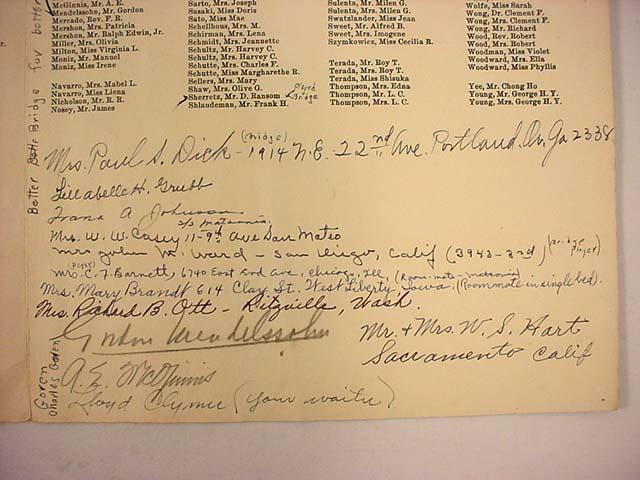 McGinnis, Mr. A. E.
Mendelssohn, Mr. Gordon
Mercado, Rev. F. R.
Mershon, Mrs. Patricia
Mershon, Mr. Ralph Edwin, Jr.
Miller, Mrs. Olivia
Milton, Miss Virginia L.
Moniz, Mr. Manuel
Moniz, Miss Irene
Navarro, Mrs. Mabel L.
Navarro, Miss Liena
Nicholson, Mr. R. R.
Nosey, Mr. James
Sarto, Mrs. Joseph
Sasaki, Miss Doris
Sato, Miss Mae
Schellhous, Mrs. M.
Schirman, Mrs. Lena
Schmidt, Mrs. Jeannette
Schultz, Mr. Harvey C.
Schultz, Mrs. Harvey C.
Schutte, Mrs. Charles F.
Schutte, Miss Margharethe R.
Sellers, Mrs. Mary
Shaw, Mrs. Olive G.
Sherretz, Mr. D. Ransom
Shlaudeman, Mr. Frank H.
played Bridge
Sulenta, Mr. Milen G.
Sulenta, Mrs. Milen G.
Swatzlander, Miss Jean
Sweet, Mr. Alfred B.
Sweet, Mrs. Imogene
Szymkowicz, Miss Cecilia R.
Terada, Mr. Roy T.
Terada, Mrs. Roy T.
Terada, Miss Shizuka
Thompson, Mrs. Edna
Thompson, Mr. L. C.
Thompson, Mrs. L. C.
Wolfe, Miss Sarah
Wong, Dr. Clement F.
Wong, Mrs. Clement F.
Wong, Mr. Richard
Wood, Rev. Robert
Wood, Mrs. Robert
Woodman, Miss Violet
Woodward, Mrs. Ella
Woodward, Miss Phyllis
Yee, Mr. Chong Ho
Young, Mr. George H. Y.
Young, Mrs. George H. Y.
Better Bridge for better
Goren
Charles Goren
(Bridge)
Mrs. Paul S. Dick - 1914 N.E. 22nd Ave. Portland. Or. Ga 2338
Lillabelle H. Grubb
A Johnson
s/s Matsonia
Mrs. W. W. Casey 11-9th Ave San Mateo
Mrs John M. Ward - San Diego, Calif (3943-32d) (Bridge Player)
Mrs. C. F. Barnett, 6740 East End Ave, Chicago, Ill. (Room-mate-Matsonia)
Mrs. Mary Brandt 614 Clay St. West Liberty, Iowa. (Roommate in single bed).
Mrs. Richard B. Ott - Ritzville, Wash.
Gordon Mendelssohn
Mr. & Mrs. W. S. Hart
Sacramento Calif
A. E. McGinnis
Lloyd Clymer (your waiter)